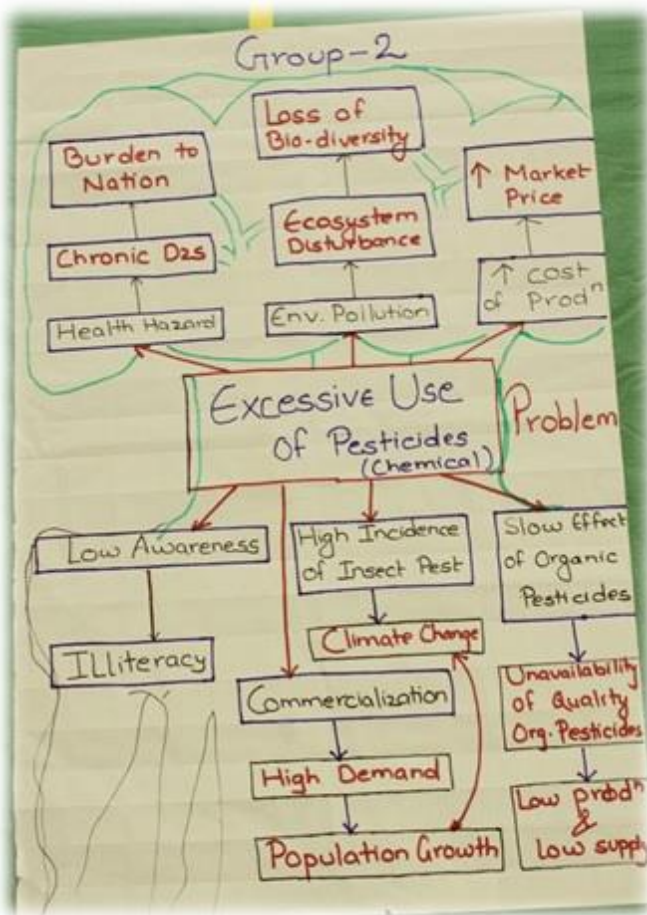 Group-2
Loss of
Bio-diversity
Burden to
Nation
↑ Market
Price
Ecosystem
Disturbance
Chronic D2s
↑ Cost
of Prodⁿ
Health Hazard
Env. Pollution
Excessive Use
of Pesticides
(Chemical)
Problem
Low Awareness
High Incidence
of Insect Pest
Slow Effect
of Organic
Pesticides
Climate Change
ILLiteracy
Commercialization
Unavailability
of Quality
Org. Pesticides
High Demand
Low prodⁿ
&
Low supply
Population Growth